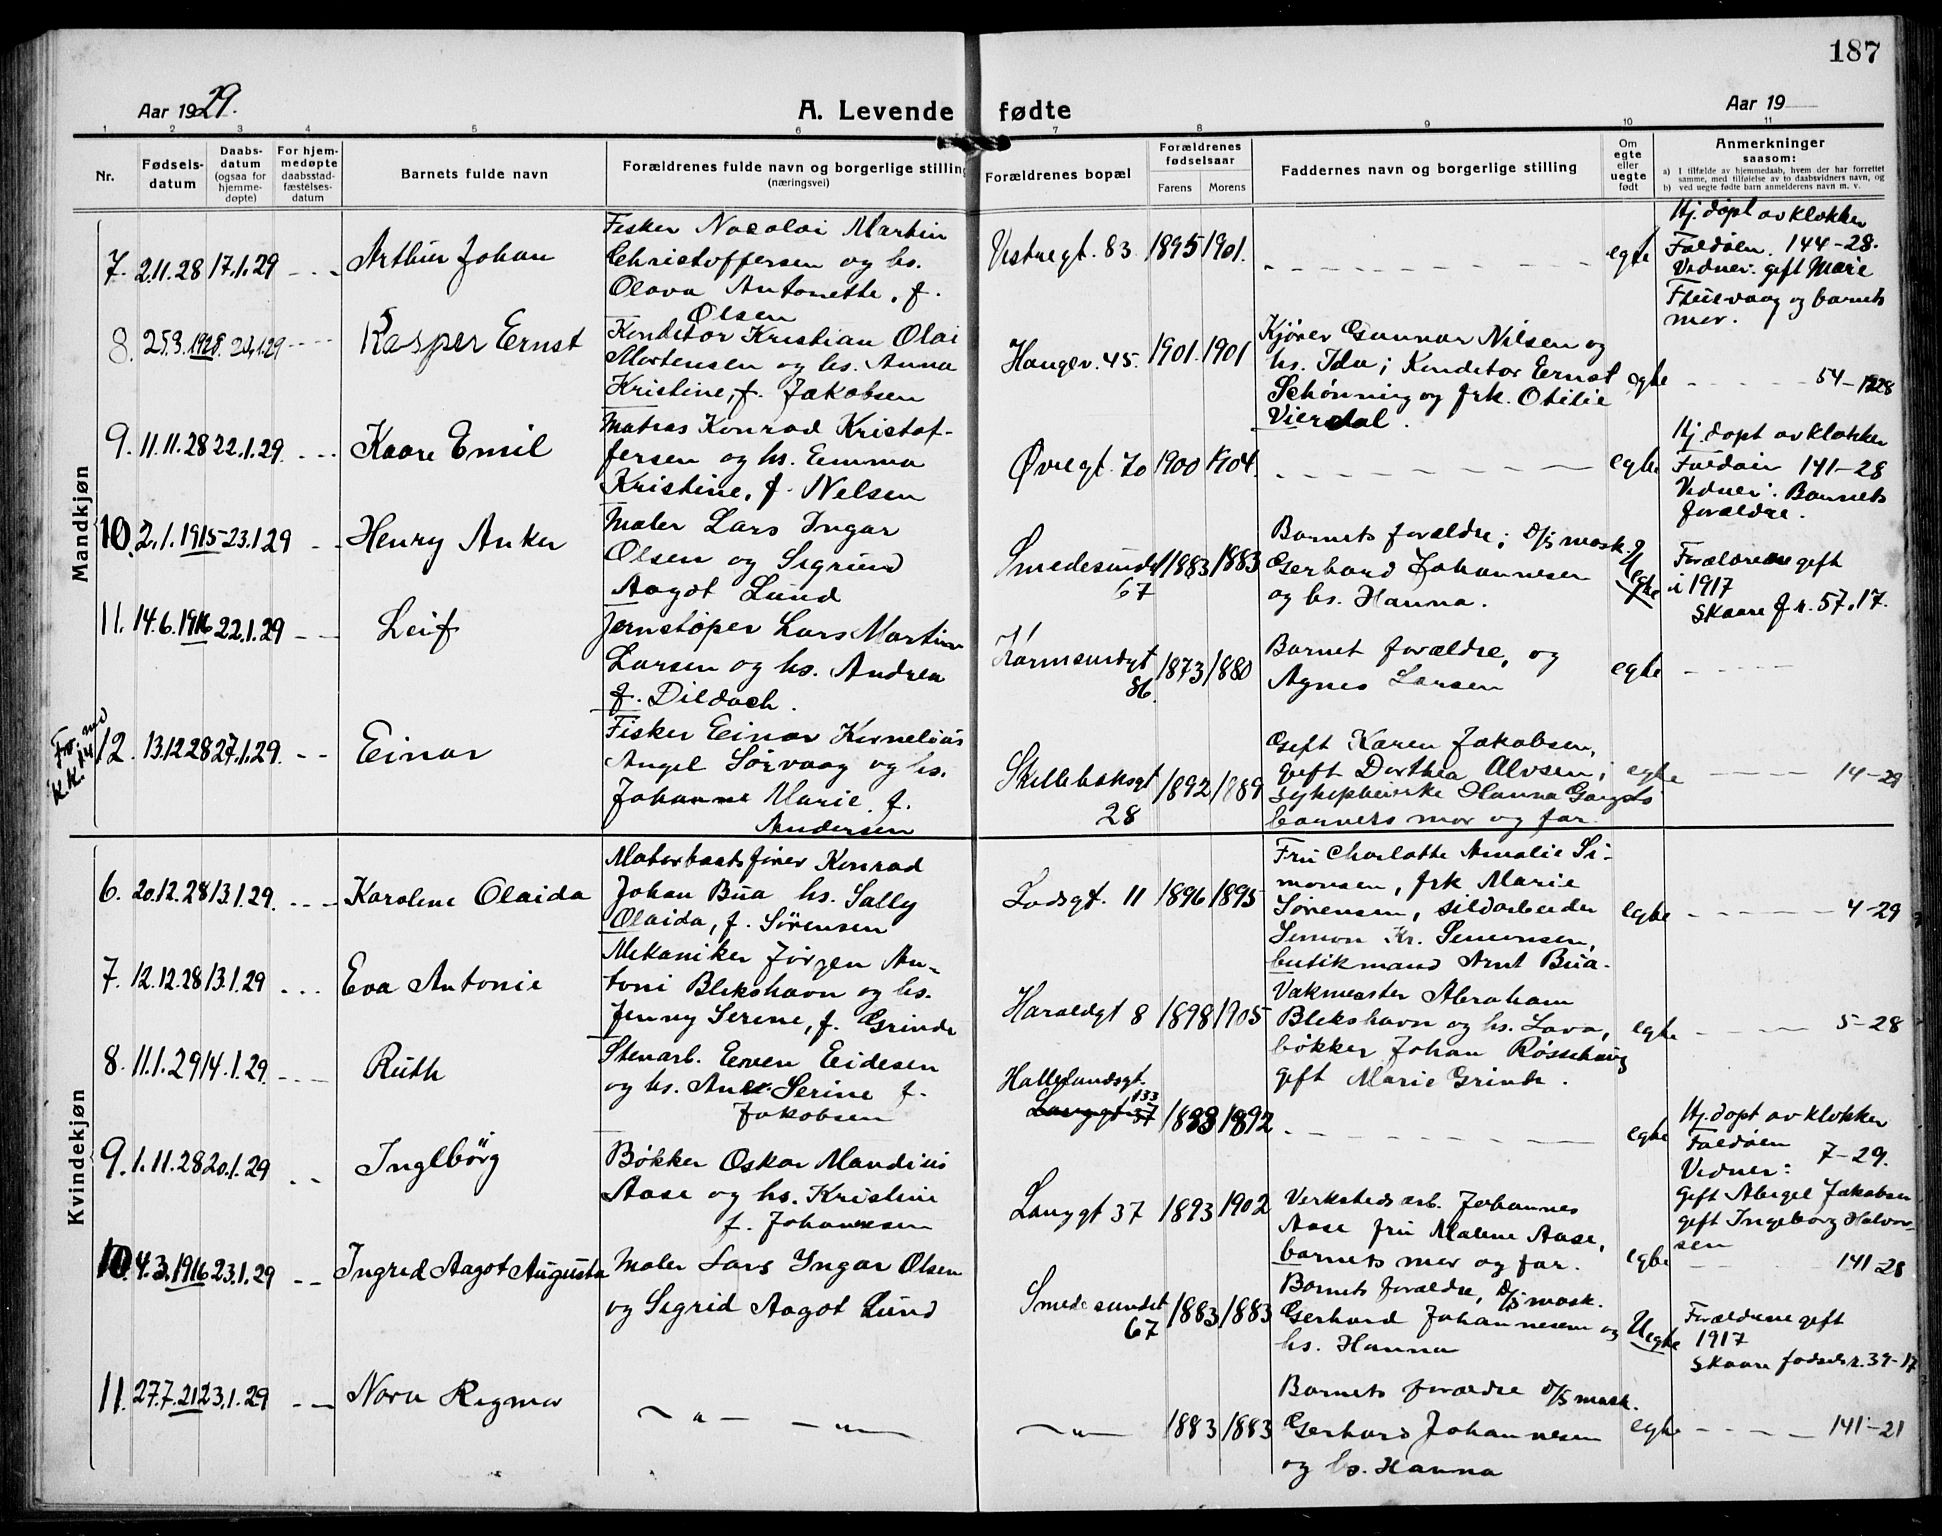 187
Aar 1929.
A. Levende fødte
Aar 19
1 2 3 4 5 6 7 8 9 10 11
Nr.
Fødsels-
datum
Daabs-
datum
(ogsaa for
hjemme-
døpte)
For hjem-
medøpte
daabsstad-
fæstelses-
datum
Barnets fulde navn
Forældrenes fulde navn og borgerlige stilling
(næringsvei)
Forældrenes bopæl
Forældrenes
fødselsaar
Farens Morens
Faddernes navn og borgerlige stilling
Om
egte
eller
uegte
født
Anmerkninger
saasom:
a) I tilfælde av hjemmedaab, hvem der har forrettet
samme, med tilføielse av to daabsvidners navn, og
b) ved uegte fødte barn anmelderens navn m. v.
Mandkjøn
7. 2.11.28 17.1.29
Arthur Johan
Fisker Nocolai Martin
Christoffersen og hs.
Olava Antonette, f.
Olsen
Vestregt. 83 1895 1901.
egte
Hj. døpt av klokker
Faldøen. 144-28.
Vidner: gift Marie
og barnets
mor.
8. 25.3.1928. 20.1.29
Kasper Ernst
Konditor Kristian Olai
Mortensen og hs. Anna
Kristine, f. Jakobsen
Haugev. 45. 1901. 1901
Kjører Gunnar Nilsen og
hs. Ida; Konditor Ernst
Schønning og frk. Otilie
Vierdal.
egte
54-1928
9. 11.11.28 22.1.29
Kaare Emil
Matros Konrad Kristof-
fersen og hs. Emma
Kristine, f. Nelsen
Øvregt. 70 1900 1904.
egte
Hj. døpt av klokker
Faldøien 141-28
Vidner: Barnets
forældre.
10. 2.1.1915 23.1.29
Henry Anker
Maler Lars Ingar
Olsen og Sigrund
Aagot Lund
Smedesundet
67
1883 1883
Barnets forældre; D/S mask.
Gerhard Johannesen
og hs. Hanna.
Uegte
Forældrene gift
i 1917
Skaare f.r. 57.17.
11. 14.6.1916 22.1.29
Leif
Jernstøper Lars Martin
Larsen og hs. Andrea
f. Dildach.
Karmsundgt
86.
1873 1880
Barnet forældre, og
Agnes Larsen
egte
12. 13.12 28 27.1.29.
Einar
Fisker Einar Kornelius
Angel Sørvaag og hs.
Johanne Marie f.
Andersen
Skillebeksgt
28
1892 1889
Gift Karen Jakobsen,
gift Dorthea Alvsen;
sykepleierske Hanna
barnets mor og far.
egte
14-29
Kvindekjøn
6. 20.12.28 13.1.29.
Karoline Olaida
Motorbaatsfører Konrad
Johan Bua hs. Sally
Olaida, f. Sørensen
Lodsgt. 11 1896 1895
Fru Charlotte Amalie Si-
monsen, frk Marie
Sørensen, sildarbeider
Simon Kr. Simonsen,
butikmand Arnt Bua.
egte
4-29
7. 12.12.28 13.1.29
Eva Antonie
Mekaniker Jørgen An-
toni Blikshavn og hs.
Jenny Serine, f. Grinde
Haraldgt 8 1898 1905
Vakmester Abraham
Blikshavn og hs. Lava,
bøkker Johan Røssehaug
gift Marie Grinde.
egte
5-28
8. 11.1.29 14.1.29.
Ruth
Stenarb. Even Eidesen
og hs. Ane Serine f.
Jakobsen
Hallelandsgt.
133
Langgt 37
1883 1892
egte
Hj. døpt av klokker
Faldøen
Vidner: 7-29.
gift Abigel Jakobsen
gift Ingeborg Halvor-
sen
9. 1.11.28 20.1.29
Ingebørg
Bøkker Oskar Mandius
Aase og hs. Kristine
f. Johannesen
Langgt 37 1893 1902
Verkstedsarb. Johannes
Aase fru Malene Aase,
barnets mor og far.
egte
141-28
10. 4.3.1916 23.1.29
Ingrid Aagot Augusta
Maler Lars Ingar Olsen
og Sigrid Aagot Lund
Smedesundet
67
1883 1883
Barnets forældre, D/S mask.
Gerhard Johannesen og
hs. Hanna
Uegte
Forældrene gift
1917
Skaare fødsels r. 39-17
11. 27.7.21 23.1.29
Nora Rigmor
— " — — " —
— " —
1883 1883
Barnets forældre D/S mask.
Gerhard Johannesen
og hs. Hanna
egte
141-21